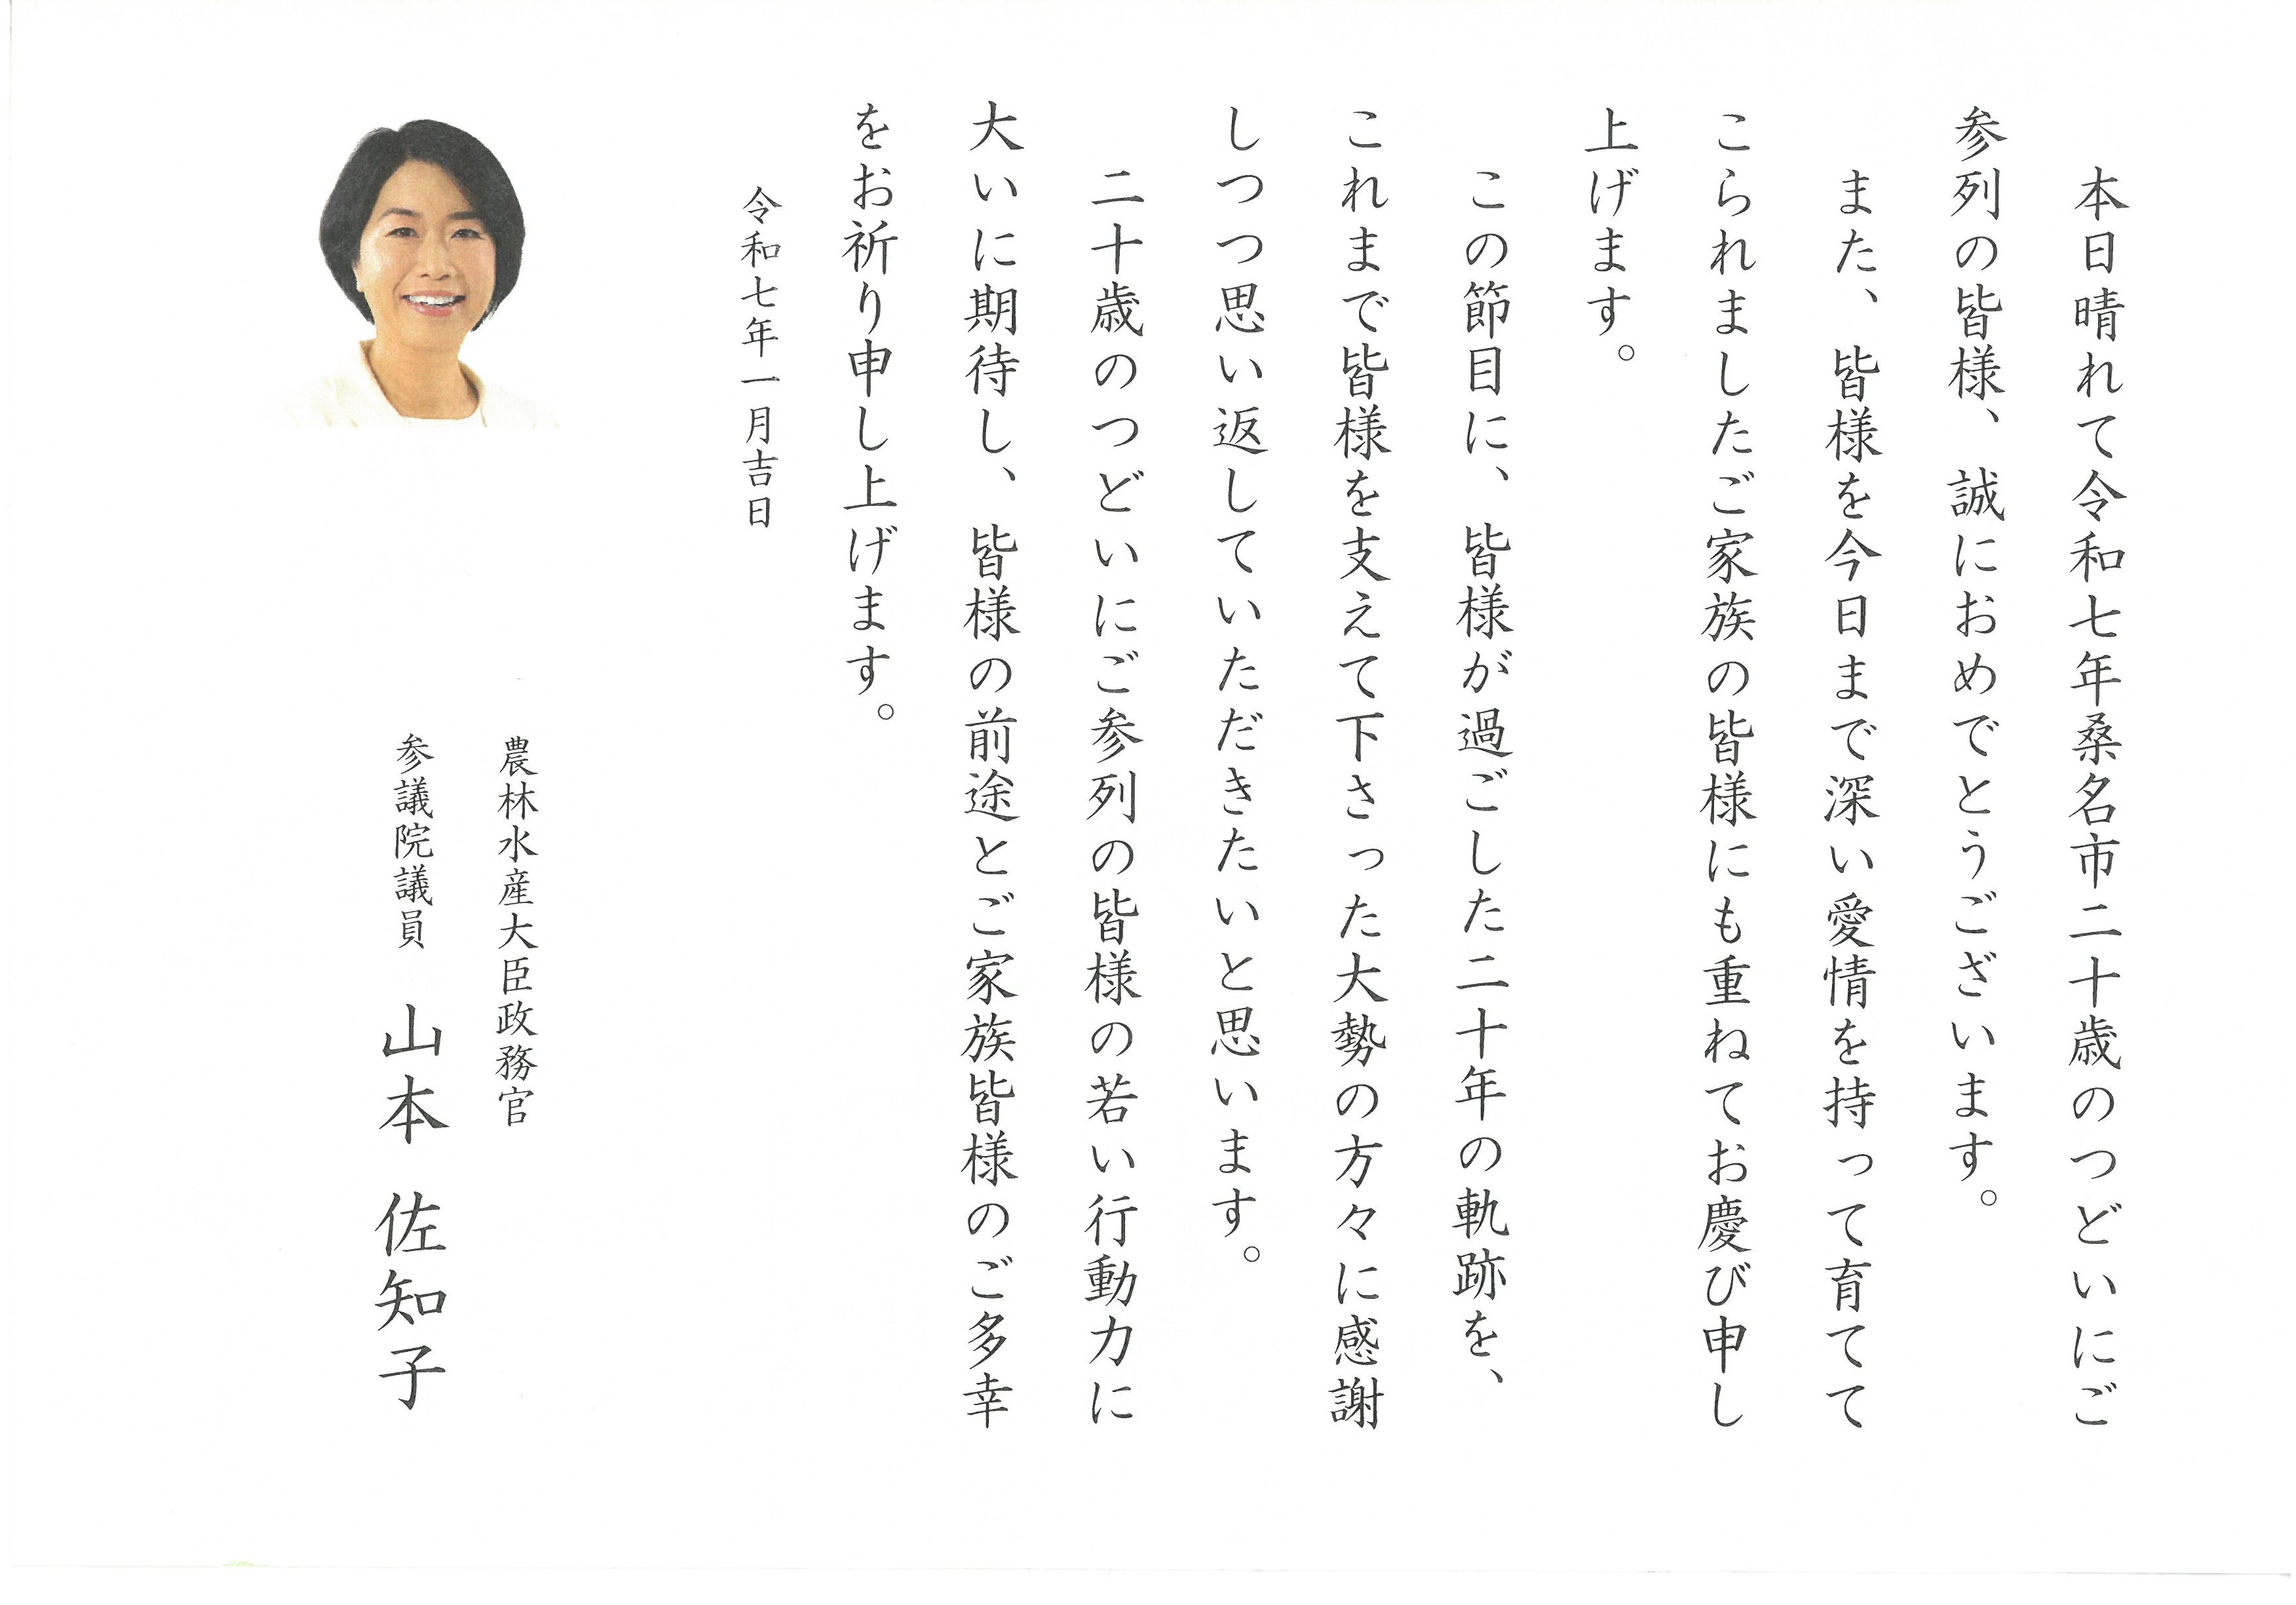 本日晴れて令和七年桑名市二十歳のつどいにご
参列の皆様、誠におめでとうございます。
また、皆様を今日まで深い愛情を持って育てて
こられましたご家族の皆様にも重ねてお慶び申し
上げます。
この節目に、皆様が過ごした二十年の軌跡を、
これまで皆様を支えて下さった大勢の方々に感謝
しつつ思い返していただきたいと思います。
二十歳のつどいにご参列の皆様の若い行動力に
大いに期待し、皆様の前途とご家族皆様のご多幸
をお祈り申し上げます。
令和七年一月吉日
農林水産大臣政務官
参議院議員 山本 佐知子